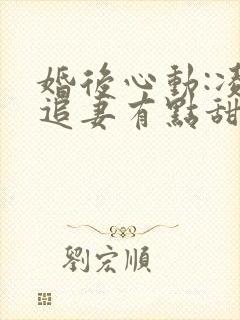 婚後心動:凌
追妻有點甜
劉宏順